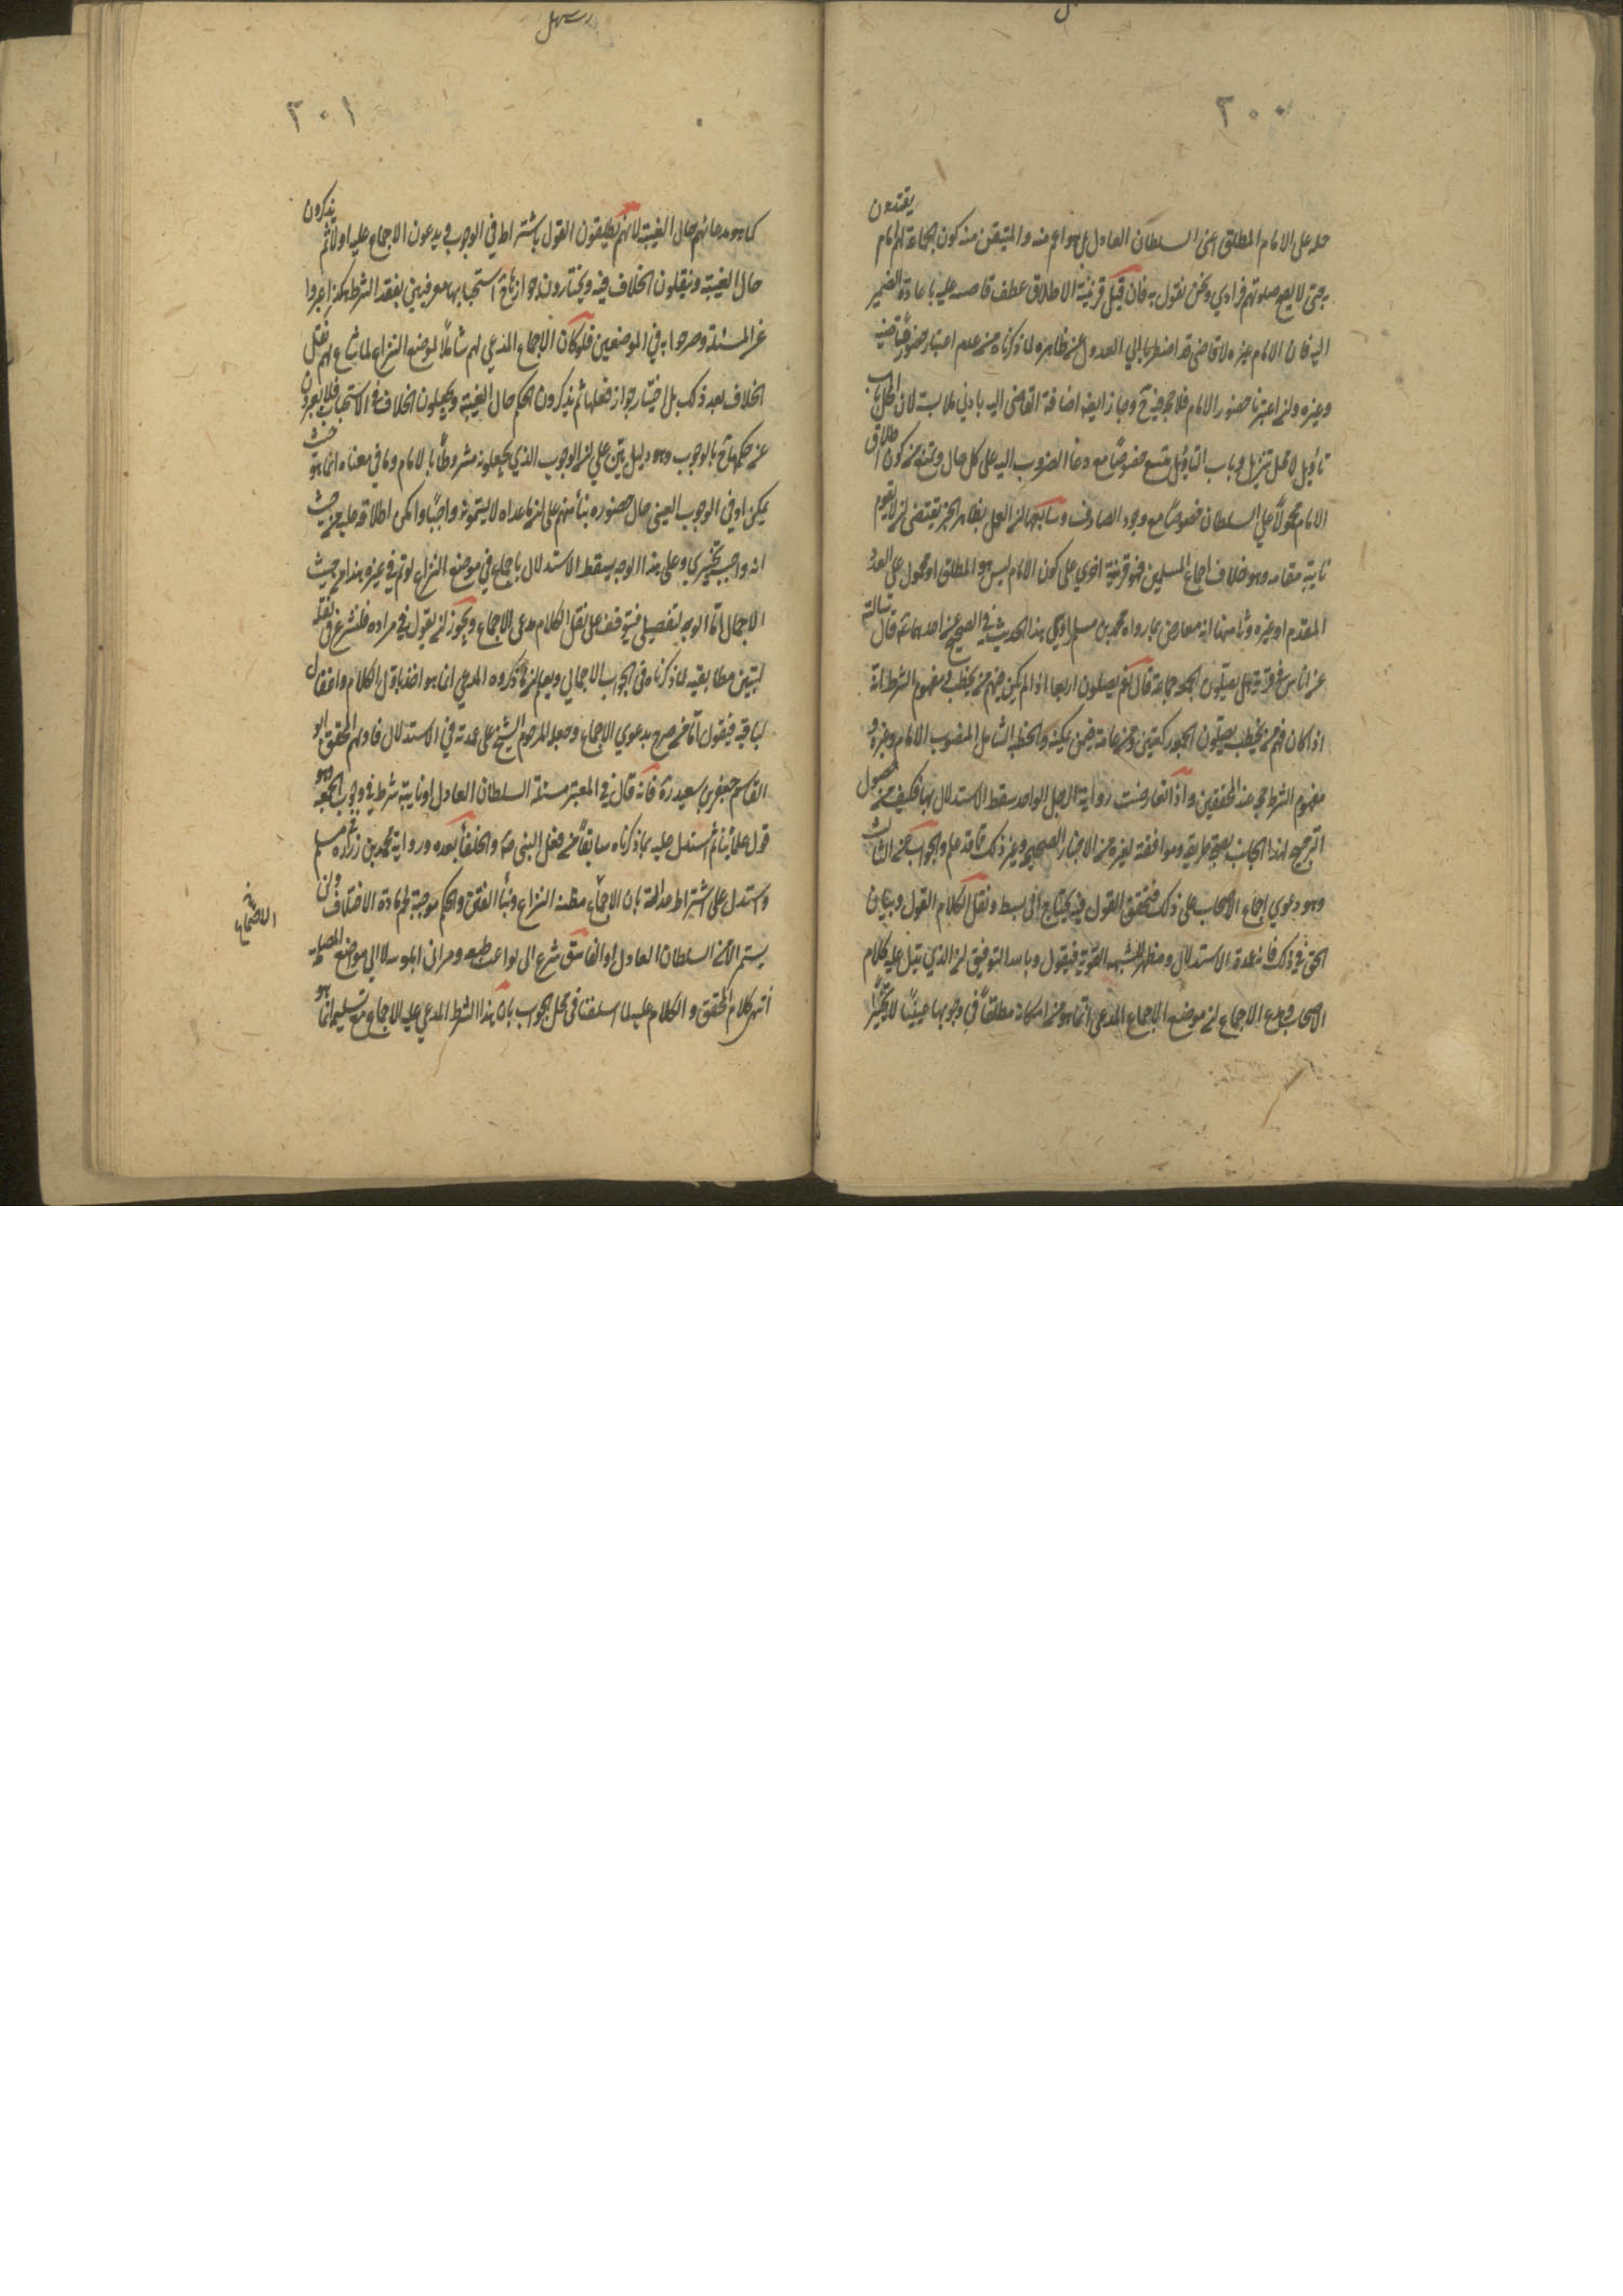 ٢٠٠
يقتدون
حمله على الامام المطلق اعني السلطان العادل بل هو اعم منه والمتيقن منه كون الجماعة لهم امام
به حتى لا يصح صلوتهم فرادي ونحن نقول به فان قيل قرينة الاطلاق عطف قاضيه عليه باعادة الضمير
اليه فان الامام غيره لا قاضي له قد اضطررنا الي العدول عن ظاهره لما ذكرناه من عدم اعتبار حضور قاضيه
وغيره وان اعتبرنا حضور الامام فلا حجة فيه ح وجاز ايضا اضافة القاضي اليه بادني ملابسة لان الحال باب
تأويل لا محل تنزيل وباب التأويل متسع خصوصًا مع دعاء الضروب اليه على كل حال ويمنع من كون اطلاق
الامام محمولاً علي السلطان خصوصًا مع وجود الصارف وسابعها ان العمل بظاهر الخبر يقتضى ان لا يقوم
نايبه مقامه وهو خلاف اجماع المسلمين فهو قرينة اخري على كون الامام ليس هو المطلق او محمول علي العدد
المقدم او غيره وثامنها انه معارض بما رواه محمد بن مسلم راوي هذا الحديث في الصحيح عن احدهما قال سالته
عن اناس في قرية هل يصلون الجمعة جماعة قال نعم يصلون اربعا اذا لم يكن فيهم من يخطب ومفهوم الشرط انه
اذا كان فيهم من يخطب يصلون الجمعة ركعتين ومن عامة فيمن يمكنه الخطبة الشامل المنصوب الامام وغيره و
مفهوم الشرط حجة عند المحققين واذا تعارضت رواية الرجل الواحد سقط الاستدلال بها فكيف مع حصول
الترجيح لهذا الجانب بصحة طريقه وموافقته لغيره من الاخبار الصحيحة وغير ذلك مما قد علم والجواب عن الثالث
وهو دعوي اجماع الاصحاب على ذلك فتحقق القول فيه يحتاج الى بسط ونقل الكلام القول وبيان
الحق في ذلك فانه عمدة الاستدلال ومظهر الشبهة القوية فيقول وبالله التوفيق ان الذي يتل عليه كلام
الاصحاب ومدعي الاجماع ان موضع الاجماع المدعى انما هو من امكانه مطلقاً في وجوبها عينيًا لا تخييرًا
٢٠١
كما هو مدعائهم حال الغيبة لانهم يطلقون القول باشتراط في الوجوب ويدعون الاجماع عليه اولا ثم يذكرون
حال الغيبة وينقلون الخلاف فيه ويختارون جوازها ح استحبابها معرفين بفقد الشرط هكذا عبروا
عن المسئلة وصرحوا به في الموضعين فلو كان الاجماع المدعي لهم شاملاً لموضع النزاع لما ساغ لهم نقل
الخلاف بعد ذلك بل اختيار جواز فعلها ثم يذكرون الحكم حال الغيبة ويجعلون الخلاف في الاستحباب فلا يعبرون
عن حكمها ح بالوجوب وهو دليل بين علي ان الوجوب الذي يجعلونه مشروطاً بالامام وما في معناه انما هو حيث
يمكن او في الوجوب العينى حال حضوره بناءً منهم على ان ما عداه لا يسمونه واجباً وامكن اطلاقه عليه من حيث
انه واجب تخييري وعلى هذا الوجه يسقط الاستدلال باجماع في موضع النزاع لو تم في غيره هذا من حيث
الاجمال اما الوجه لتفصيلى فيتوقف على نقل الكلام مدعى الاجماع ويجوز ان يقول في مراده فلنشرع في نقله
ليتبين مطابقته لما ذكرناه في الجواب الاجمالي ويعلم ان ما ذكروه المدعي انما هو اخذ باول الكلام واغفال
لباقيه فيقول اما من صرح بدعوي الاجماع وجعله المرحوم الشيخ على عمدته في الاستدلال فاولهم المحقق ابو
القاسم جعفر بن سعيد ره فانه قال في المعتبر مسئلة السلطان العادل او نايبه شرط في وجوب الجمعة وهو
قول علمائنا ثم استدل عليه بما ذكرناه سابقاً من فعل النبي ص والخلفاء بعده ورواية محمد بن مسلم
واستدل على اشتراط عدالته بان الاجتماع مظنة النزاع ومثار الفتن والحكم موجبة لحسم مادة الاختلاف ولن
يستمر الا مع السلطان العادل او الفاسق شرع الى بواعث طبعه ومرانى اهلويه لا الي مواضع المصلحة
انتهى كلام المحقق والكلام عليه لما اسلفنا في محل الجواب بان هذا الشرط المدعي عليه الاجماع مع تسليمه انما هو